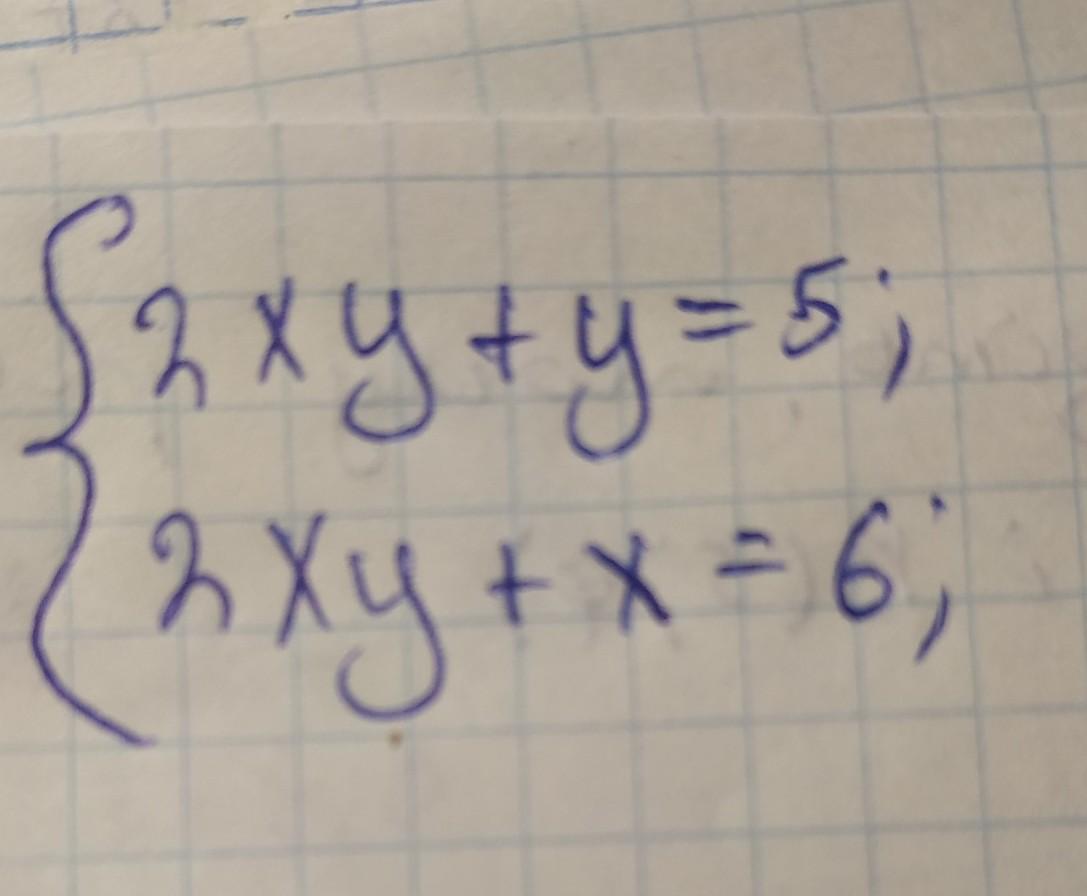 2xy + y = 5;
2xy + x = 6;